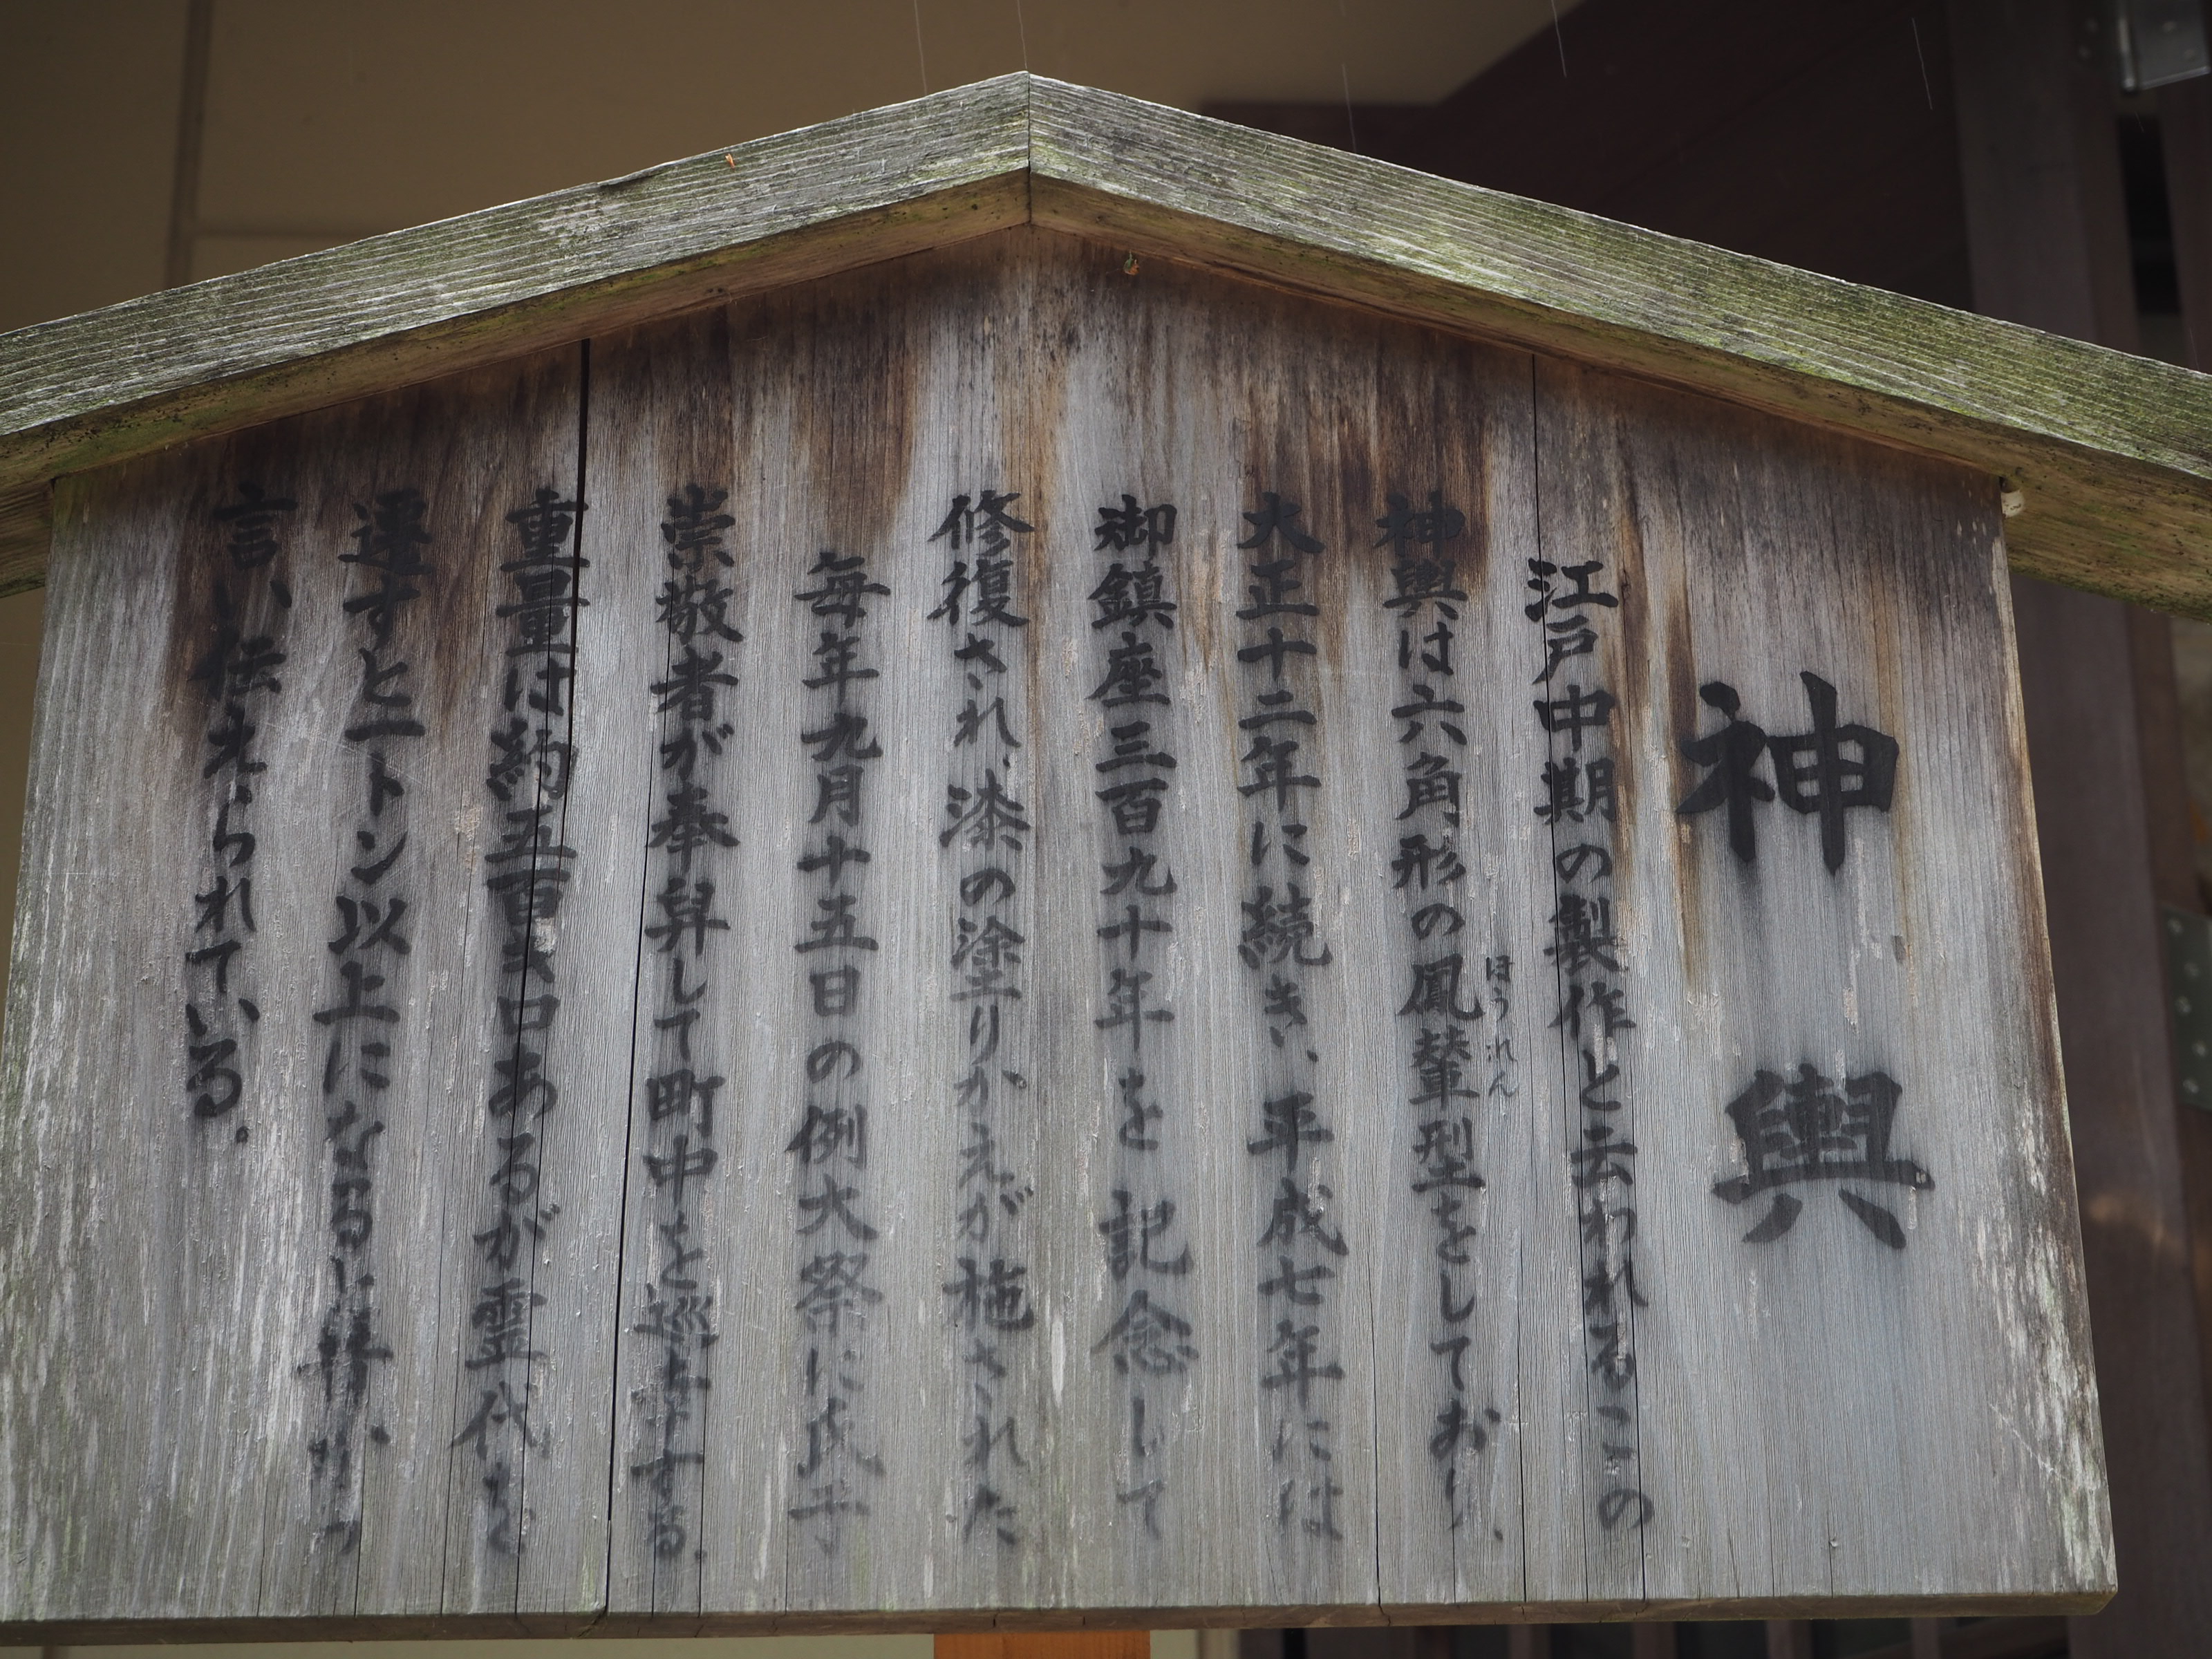 神輿
江戸中期の製作と云われるこの
神輿は六角形の鳳輦型をしており、
ほうれん
大正十二年に続き、平成七年には
御鎮座三百九十年を記念して
修復され、漆の塗りかえが施された
毎年九月十五日の例大祭に氏子
崇敬者が奉舁して町中を巡幸する。
重量は約五百キロあるが霊代を
遷すと一トン以上になると昔から
言い伝えられている。